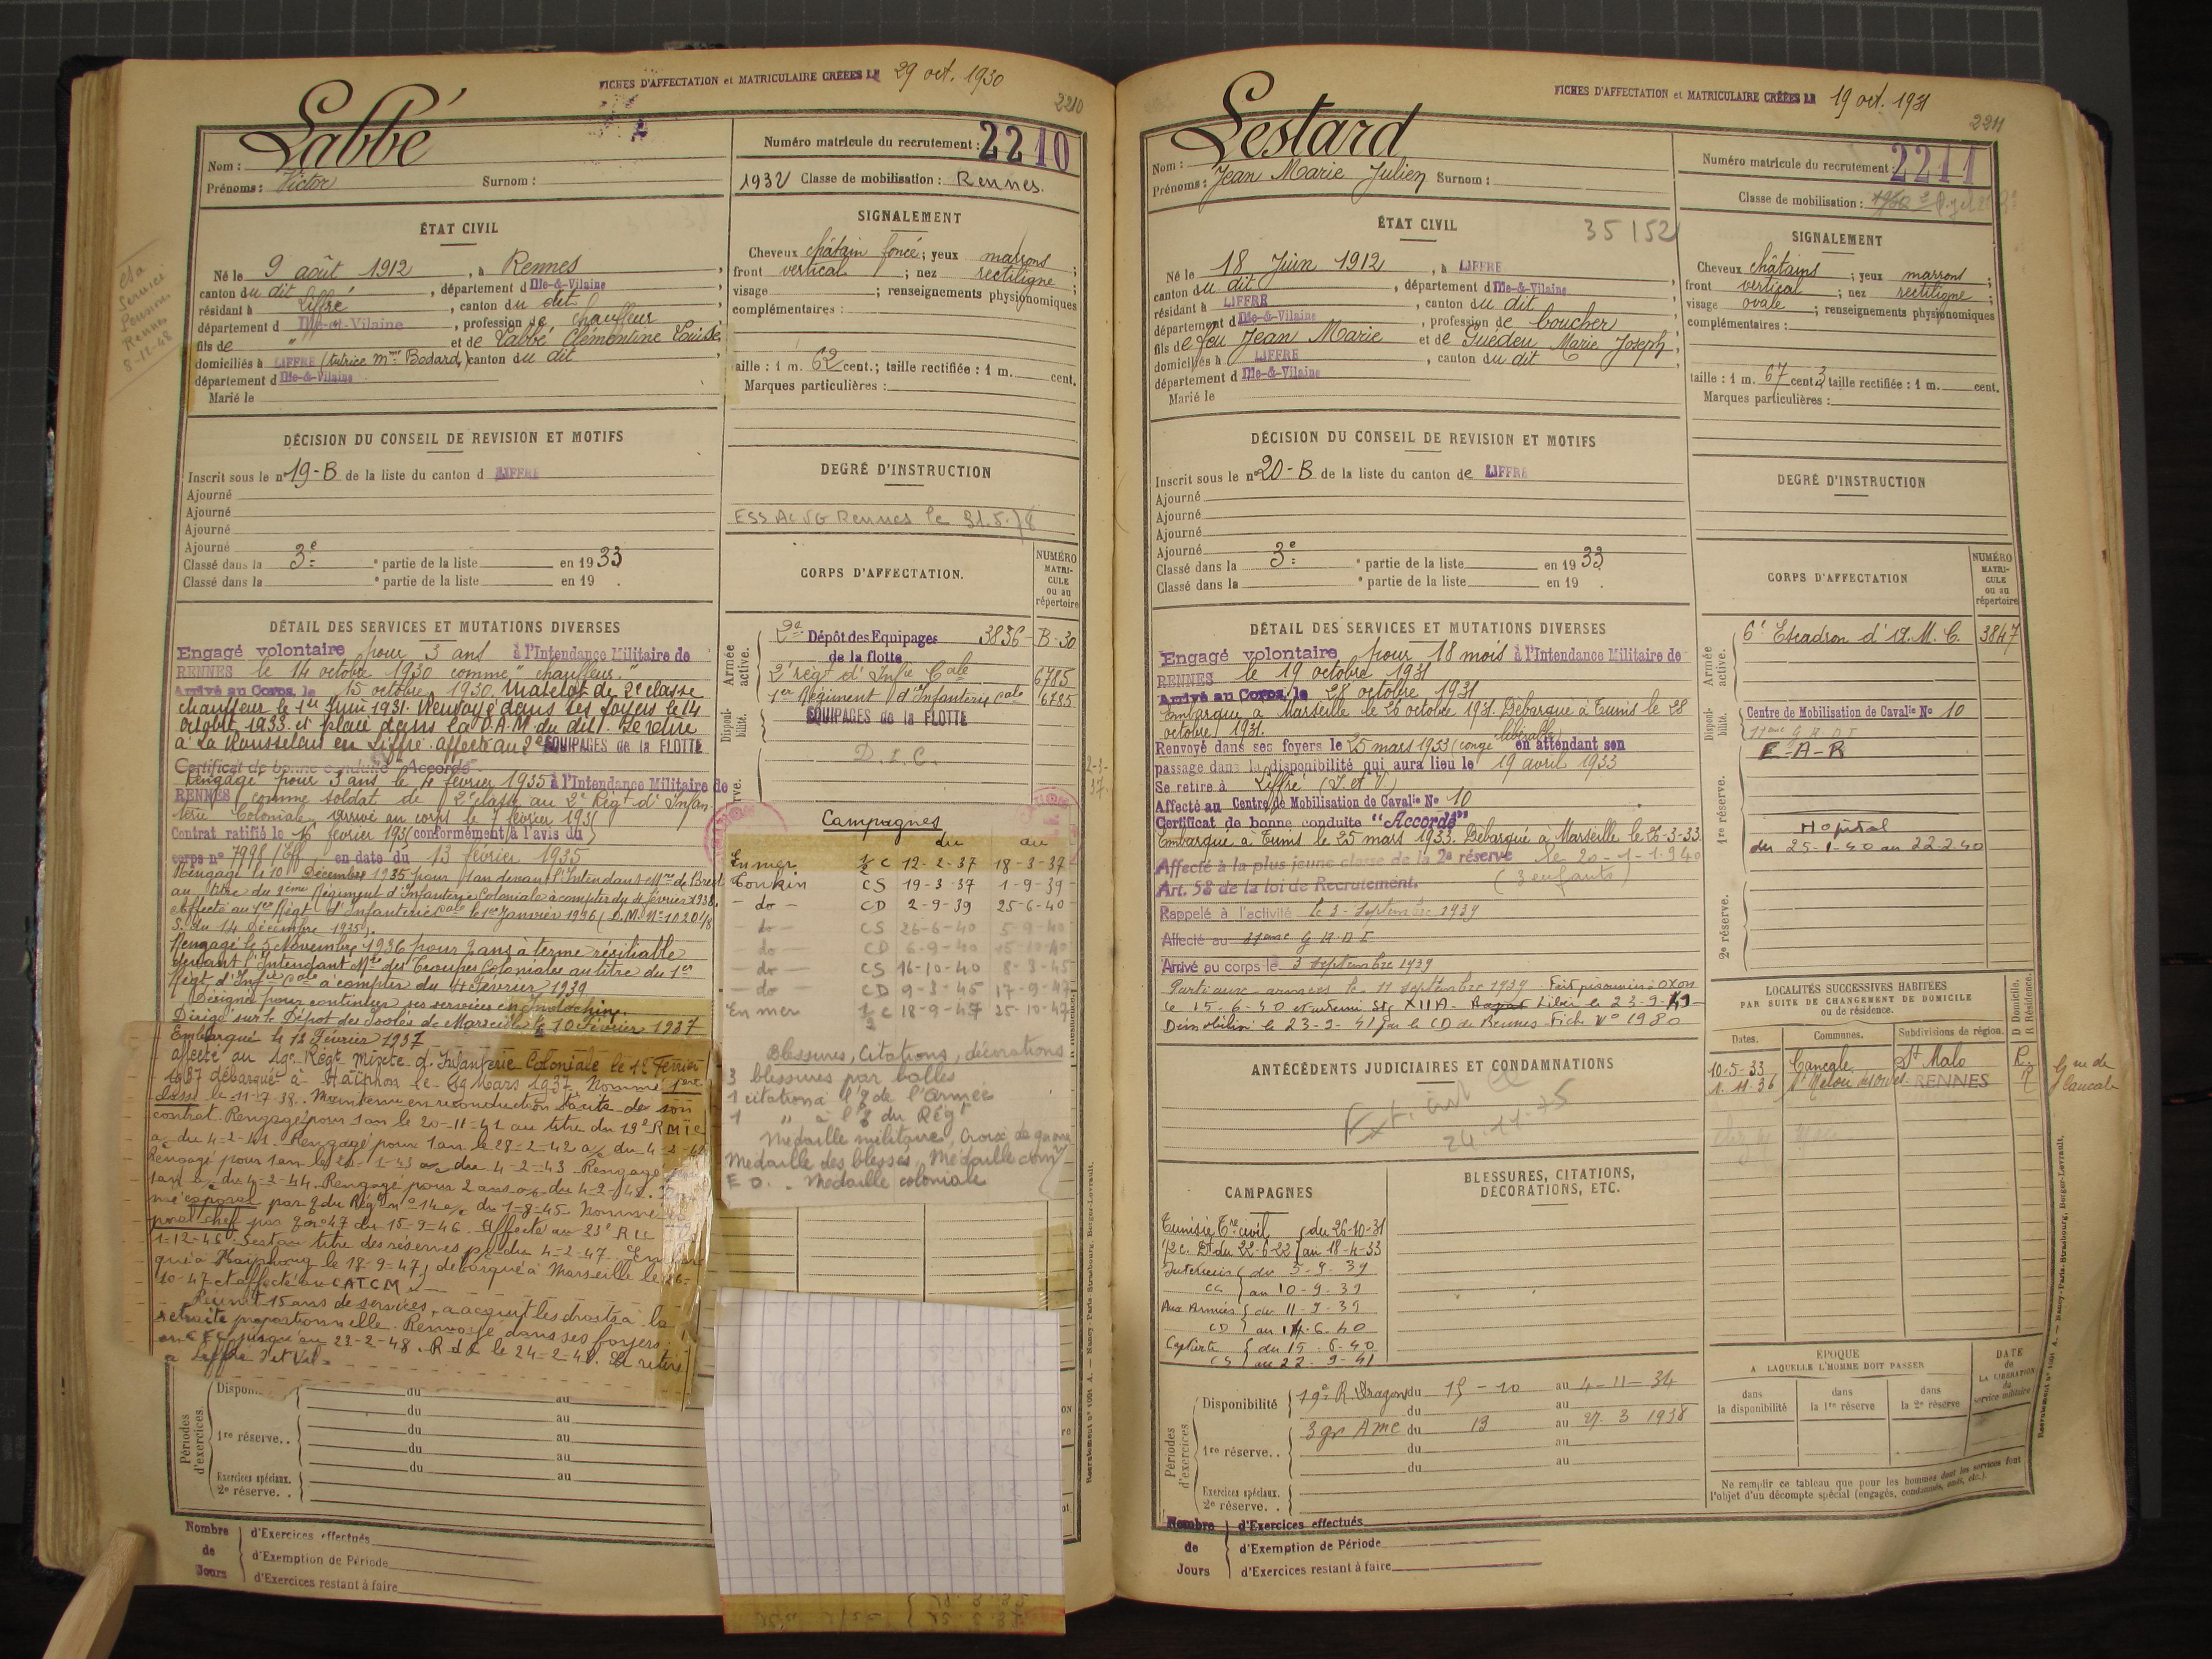 FICHES D'AFFECTATION et MATRICULAIRE CRÉÉES LE 29 oct. 1930
2210
Nom : Labbé
Prénoms : Victor Surnom :
Numéro matricule du recrutement : 2210
1932 Classe de mobilisation : Rennes.
ÉTAT CIVIL
Né le 9 août 1912, à Rennes,
canton du dit, département d Ille-&-Vilaine
résidant à Liffré, canton du dit,
département d Ille-et-Vilaine, profession de chauffeur
fils de " et de Labbé Clémentine Louise,
domiciliés à LIFFRÉ (tutrice Mme Bodard) canton du dit
département d Ille-&-Vilaine
Marié le
SIGNALEMENT
Cheveux châtain foncé ; yeux marrons ;
front vertical ; nez rectiligne ;
visage ; renseignements physionomiques
complémentaires :
aille : 1 m. 62 cent. ; taille rectifiée : 1 m. cent.
Marques particulières :
DÉCISION DU CONSEIL DE REVISION ET MOTIFS
Inscrit sous le n° 19-B de la liste du canton d LIFFRÉ
Ajourné
Ajourné
Ajourné
Ajourné
Classé dans la 3e ° partie de la liste en 1933
Classé dans la ° partie de la liste en 19 .
DEGRÉ D'INSTRUCTION
CORPS D'AFFECTATION.
NUMÉRO MATRI-CULE ou au répertoire
Armée active.
2e Dépôt des Equipages 3836 - B - 30
de la flotte
2e régt d'Infie Cale 6785
1er Régiment d'Infanterie cale 6785
Disponi-bilité.
EQUIPAGES de la FLOTTE
D. I. C.
DÉTAIL DES SERVICES ET MUTATIONS DIVERSES
Engagé volontaire pour 3 ans à l'Intendance Militaire de
RENNES le 14 octobre 1930 comme "chauffeur".
Arrivé au Corps, le 15 octobre 1930. Matelot de 2e classe
chauffeur le 1er Juin 1931. Renvoyé dans ses foyers le 14
octobre 1933 et placé dans la D.A.M. du dit. Se retire
à La Rousselais en Liffré. affecté au 2e EQUIPAGES de la FLOTTE
Certificat de bonne conduite Accordé
Rengagé pour 3 ans le 4 février 1935 à l'Intendance Militaire de
RENNES comme soldat de 2e classe au 2e Régt d'Infan-
terie Coloniale, arrivé au corps le 7 février 1935
Contrat ratifié le 16 février 1935 conformément à l'avis du
corps n° 7998 /Eff en date du 13 février 1935
Rengagé le 10 Décembre 1935 pour 1 an devant l'Intendant Mre de Brest
au titre du 2ème Régiment d'Infanterie Coloniale à compter du 4 février 1938.
Affecté au 1er Régt d'Infanterie Cale le 1er Janvier 1936 (D.M. N° 1020 1/8
S. du 14 Décembre 1935).
Rengagé le 5 Novembre 1936 pour 2 ans à terme résiliable
devant l'Intendant Mre des Troupes Coloniales au titre du 1er
Régt d'Infie Cale à compter du 4 Février 1939
Désigné pour continuer ses services en Indochine.
Dirigé sur le Dépôt des Isolés de Marseille le 10 Février 1937
Embarqué le 12 Février 1937
affecté au 19e Régt Mixte d'Infanterie Coloniale le 12 Février
1937 débarqué à Haïphong le 19 Mars 1937. Nommé 1ère
classe le 11-7-38. Maintenu en reconduction tacite de son
contrat. Rengagé pour 1 an le 20-11-41 au titre du 19e RMIC
a/c du 4-2-41. Rengagé pour 1 an le 28-2-42 a/c du 4-2-42
Rengagé pour 1 an le 20-1-43 a/c du 4-2-43 Rengagé
1 an a/c du 4-2-44. Rengagé pour 2 ans a/c du 4-2-45.
mé caporal par q du Régt n° 14 a/c du 1-8-45 Nommé
poral chef par q n° 47 du 15-9-46. Affecté au 23e RIC
1-12-46. Sert au titre des réserves p/c du 4-2-47. Embar
qué à Haïphong le 18-9-47, débarqué à Marseille le 26-
10-47 et affecté au CATCM
Réunit 15 ans de services, a acquit les droits à la
retraite proportionnelle. Renvoyé dans ses foyers
en CFC jusqu'au 23-2-48. RdC le 24-2-48. Se retire
à Liffré I et Vil.
Campagnes
du au
En mer ½ C 12-2-37 18-3-37
Tonkin CS 19-3-37 1-9-39
- do - CD 2-9-39 25-6-40
- do - CS 26-6-40 5-9-40
- do - CD 6-9-40 15-10-40
- do - CS 16-10-40 8-3-45
- do - CD 9-3-45 17-9-47
En mer ½ C 18-9-47 25-10-47
Blessures, Citations, décorations
3 blessures par balles
1 citation à l'q de l'Armée
1 " à l'q du Régt
Médaille militaire, Croix de guerre
Médaille des blessés, Médaille comve
E O. - Médaille coloniale
Périodes d'exercices.
Disponi
du au
du au
1re réserve. .
du au
du au
du au
Exercices spéciaux.
2e réserve. .
Nombre de Jours
d'Exercices effectués
d'Exemption de Période
d'Exercices restant à faire
FICHES D'AFFECTATION et MATRICULAIRE CRÉÉES LE 19 oct. 1931
2211
Nom : Lestard
Prénoms : Jean Marie Julien Surnom :
Numéro matricule du recrutement : 2211
Classe de mobilisation :
ÉTAT CIVIL
35152
Né le 18 Juin 1912, à LIFFRÉ
canton du dit, département d Ille-&-Vilaine
résidant à LIFFRÉ, canton du dit,
département d Ille-&-Vilaine, profession de boucher
fils de feu Jean Marie et de Guedeu Marie Joseph,
domiciliés à LIFFRÉ, canton du dit
département d Ille-&-Vilaine
Marié le
SIGNALEMENT
Cheveux châtains ; yeux marrons ;
front vertical ; nez rectiligne ;
visage ovale ; renseignements physionomiques
complémentaires :
taille : 1 m. 67 cent 3 taille rectifiée : 1 m. cent.
Marques particulières :
DÉCISION DU CONSEIL DE REVISION ET MOTIFS
Inscrit sous le n° 20-B de la liste du canton de LIFFRÉ
Ajourné
Ajourné
Ajourné
Ajourné
Classé dans la 3e ° partie de la liste en 1933
Classé dans la ° partie de la liste en 19 .
DEGRÉ D'INSTRUCTION
CORPS D'AFFECTATION
NUMÉRO MATRI-CULE ou au répertoire
Armée active.
6e Escadron d'A.M.C. 3847
Disponi-bilité.
Centre de Mobilisation de Cavalie No 10
1re réserve.
Hopital
du 25-1-40 au 22-2-40
2e réserve.
DÉTAIL DES SERVICES ET MUTATIONS DIVERSES
Engagé volontaire pour 18 mois à l'Intendance Militaire de
RENNES le 19 octobre 1931
Arrivé au Corps, le 28 octobre 1931
Embarqué à Marseille le 26 octobre 1931. Débarqué à Tunis le 28
octobre 1931.
Renvoyé dans ses foyers le 25 mars 1933 (congé libérable) en attendant son
passage dans la disponibilité qui aura lieu le 19 avril 1933
Se retire à Liffré (I. et V.)
Affecté au Centre de Mobilisation de Cavalie No 10
Certificat de bonne conduite "Accordé"
Embarqué à Tunis le 25 mars 1933. Débarqué à Marseille le 26-3-33.
Affecté à la plus jeune classe de la 2e réserve le 20-1-1940
Art. 58 de la loi de Recrutement. (3 enfants)
Rappelé à l'activité le 3 Septembre 1939
Affecté au
Arrivé au corps le 3 septembre 1939
Parti aux armées le 11 septembre 1939 - Fait prisonnier à
le 15-6-40 et interné Stg XIIA - Libéré le 23-9-41 -
Démobilisé le 23-9-41 par le CD de Rennes. Fiche N° 1980
ANTÉCÉDENTS JUDICIAIRES ET CONDAMNATIONS
LOCALITÉS SUCCESSIVES HABITÉES
PAR SUITE DE CHANGEMENT DE DOMICILE
ou de résidence.
D Domicile.
R Résidence.
Dates. Communes. Subdivisions de région.
10-5-33 Cancale St Malo R
RENNES
CAMPAGNES
BLESSURES, CITATIONS, DÉCORATIONS, ETC.
Tunisie Tre civil du 26-10-31
½ c. Dt du 22-6-22 au 18-4-33
Intérieur du 3-9-39
CS au 10-9-39
Aux Armées du 11-9-39
CD au 14-6-40
Captivité du 15-6-40
CS au 22-9-41
Périodes d'exercices
Disponibilité 19e R. Dragons du 15-10 au 4-11-34
du au
1re réserve. . 3 gr AMC du 13 au 27-3 1938
du au
du au
Exercices spéciaux.
2e réserve. .
ÉPOQUE
A LAQUELLE L'HOMME DOIT PASSER
dans la disponibilité
dans la 1re réserve
dans la 2e réserve
DATE de LA LIBÉRATION du service militaire
Ne remplir ce tableau que pour les hommes dont les services font
l'objet d'un décompte spécial (engagés, condamnés, omis, etc.).
Nombre de Jours
d'Exercices effectués
d'Exemption de Période
d'Exercices restant à faire